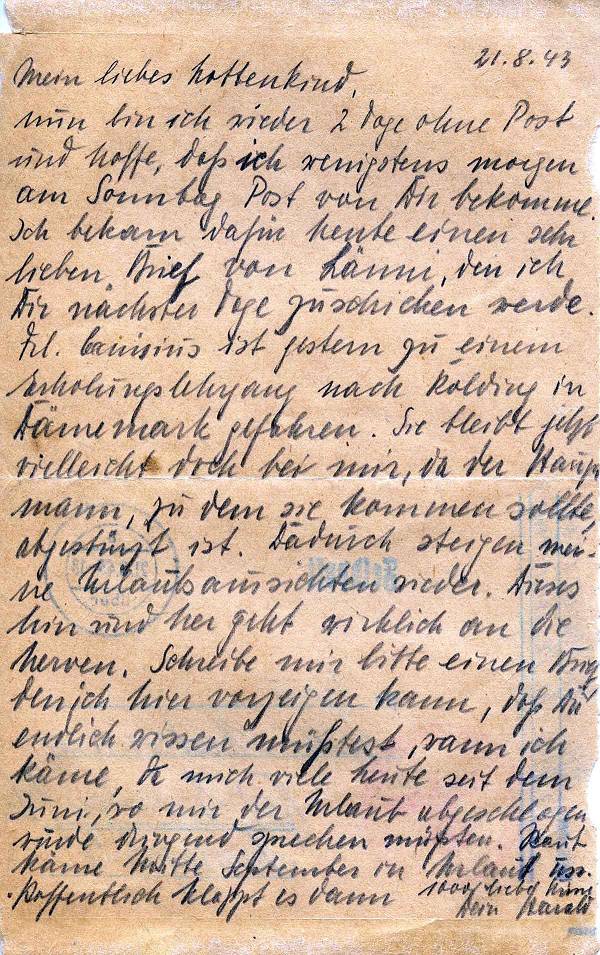 21.8.43
Mein liebes Hottenkind,
nun bin ich wieder 2 Tage ohne Post
und hoffe, daß ich wenigstens morgen
am Sonntag Post von Dir bekomme.
Ich bekam dafür heute einen sehr
lieben Brief von Länni, den ich
Dir nächster Tage zuschicken werde.
Frl. Canisius ist gestern zu einem
Erholungslehrgang nach Kolding in
Dänemark gefahren. Sie bleibt jetzt
vielleicht doch bei mir, da der Haupt
mann, zu dem sie kommen sollte,
abgestürzt ist. Dadurch steigen mei-
ne Urlaubsaussichten wieder. Dieses
hin und her geht wirklich an die
Nerven. Schreibe mir bitte einen Brief
den ich hier vorzeigen kann, daß Du
endlich wissen müßtest, wann ich
käme, da mich viele heute seit dem
Juni, wo mir der Urlaub abgeschlagen
wurde dringend sprechen müßten.
käme Mitte September in Urlaub usw.
Hoffentlich klappt es dann
1000 liebe
Dein Harald